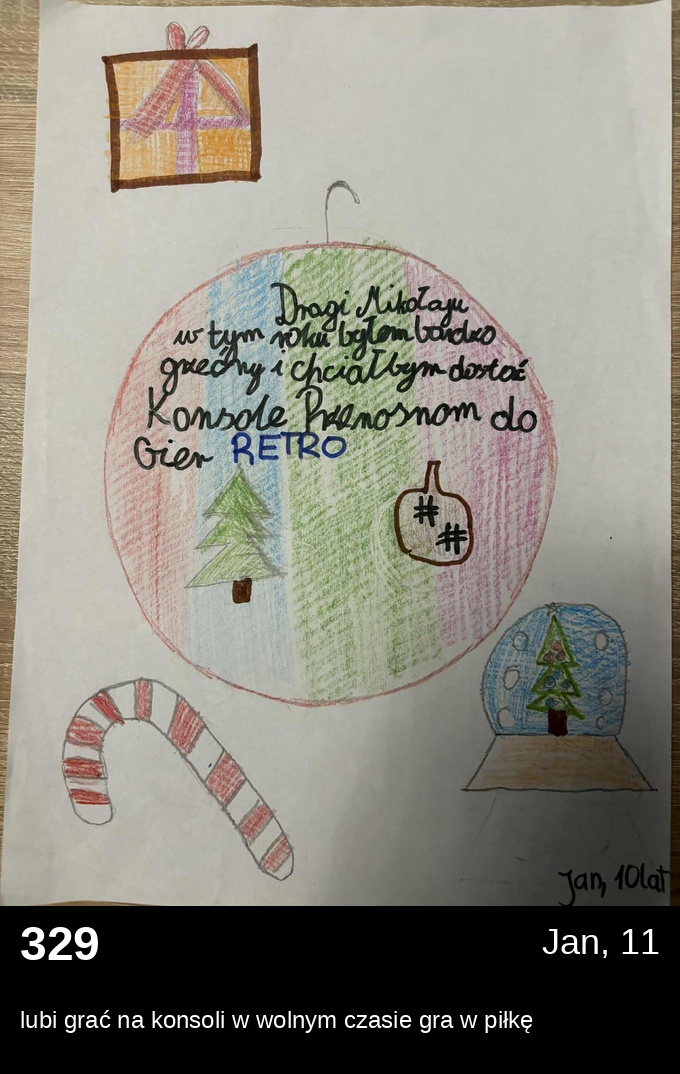 Dragi Mikołaju
w tym roku byłem bardzo
grzeczny i chciałbym dostać
Konsole Przenosnom do
Gier RETRO
# #
Jan, 10lat
329
Jan, 11
lubi grać na konsoli w wolnym czasie gra w piłkę